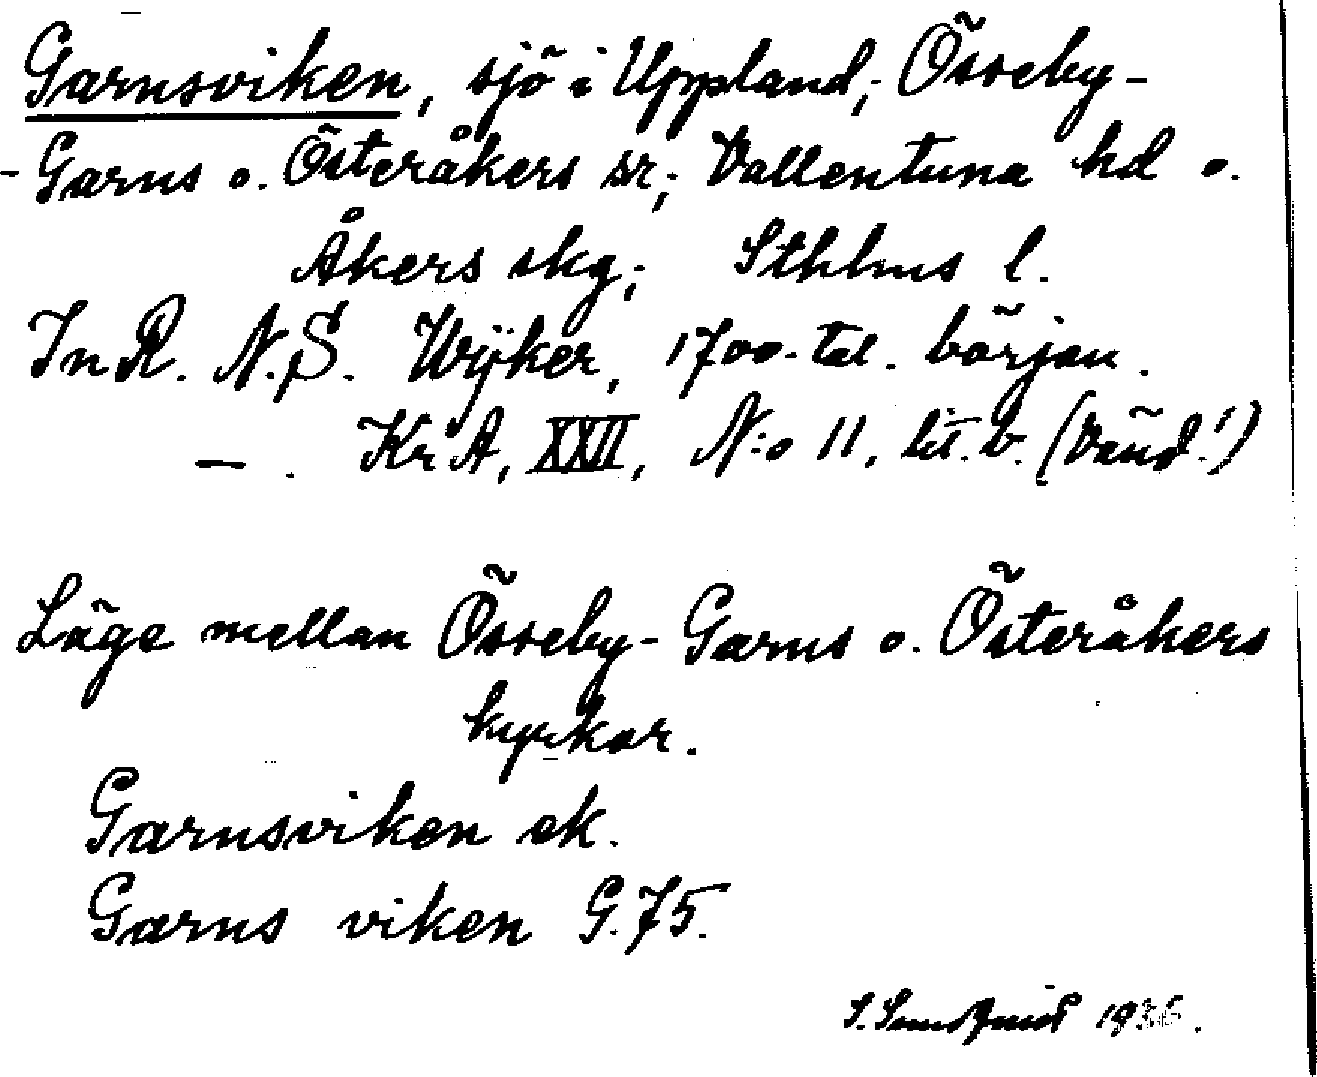 Garnsviken, sjö i Uppland; Össeby-
-Garns o. Österåkers sr; Vallentuna hd o.
Åkers skg; Sthlms l.
In R. N.S. Wijker, 1700-tal. början.
— . KrA, XXII, N:o 11, lit. b. (Vänd!)
Läge mellan Össeby-Garns o. Österåkers
kyrkor.
Garnsviken ek.
Garns viken G.75.
S.